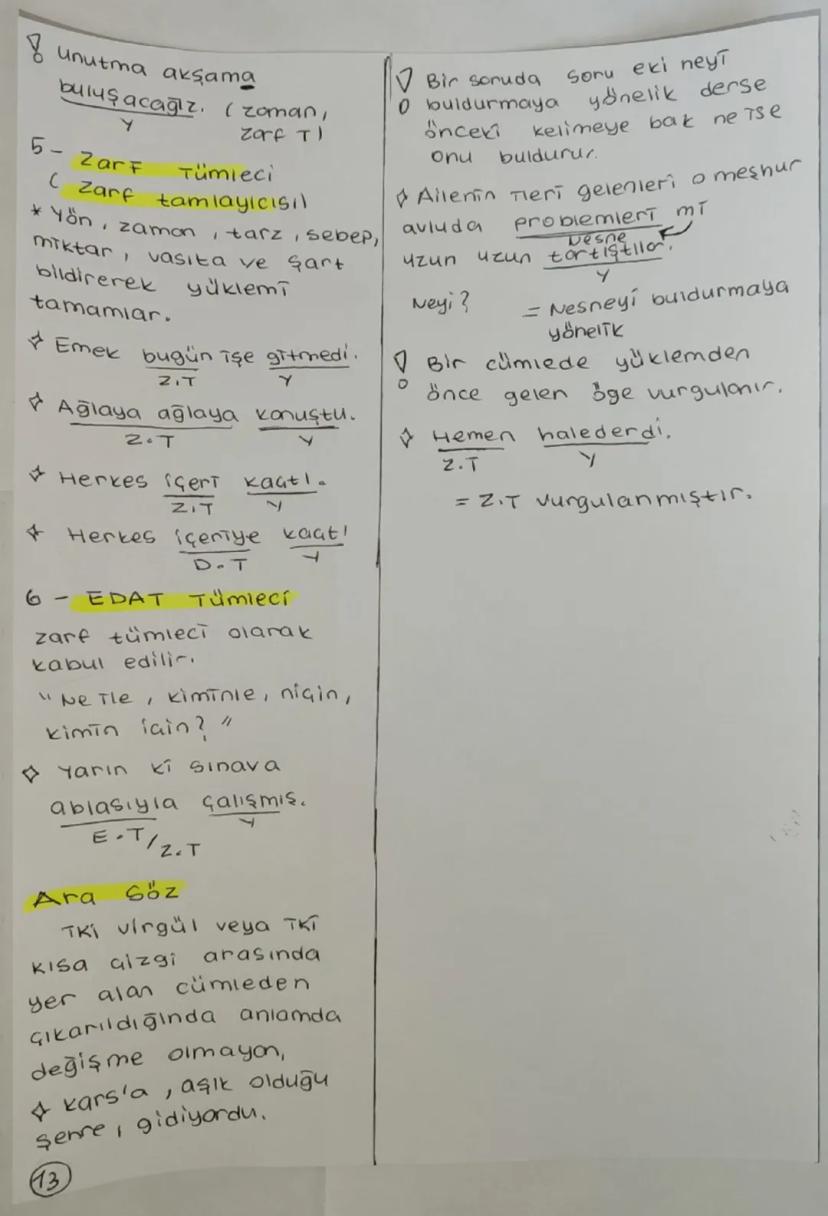 ! Unutma akşama
buluşacağız. (zaman,
Y zarf T)
5- Zarf Tümleci
( Zarf tamlayıcısı)
* Yön, zaman, tarz, sebep,
miktar, vasıta ve şart
bildirerek yüklemi
tamamlar.
✧ Emek bugün işe gitmedi.
Z.T Y
✧ Ağlaya ağlaya konuştu.
Z.T Y
✧ Herkes içeri kaçtı.
Z.T Y
✧ Herkes içeriye kaçtı
D.T Y
6 - EDAT Tümleci
zarf tümleci olarak
kabul edilir.
"Ne ile, kiminle, niçin,
kimin için?"
✧ Yarın ki sınava
ablasıyla çalışmış.
E.T/Z.T Y
Ara Söz
İki virgül veya iki
kısa çizgi arasında
yer alan cümleden
çıkarıldığında anlamda
değişme olmayan,
✧ Kars'a, aşık olduğu
şehre, gidiyordu.
13
! Bir soruda soru eki neyi
buldurmaya yönelik derse
önceki kelimeye bak ne ise
onu buldurur.
✧ Ailenin ileri gelenleri o meşhur
avluda problemleri mi
Nesne
uzun uzun tartıştılar.
Y
Neyi? = Nesneyi buldurmaya
yönelik
! Bir cümlede yüklemden
önce gelen öge vurgulanır.
✧ Hemen halederdi.
Z.T Y
= Z.T vurgulanmıştır.